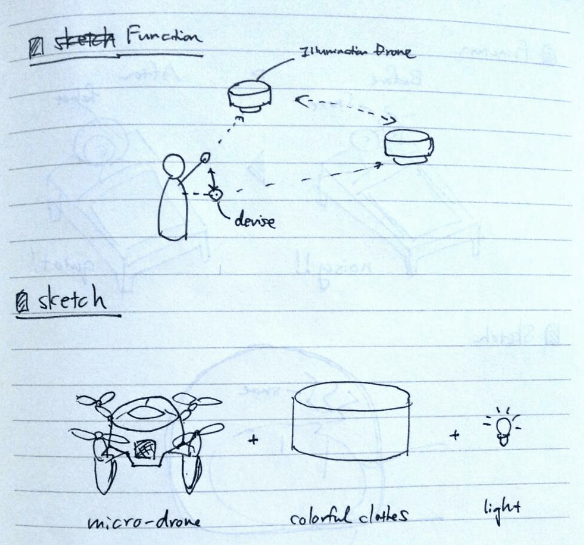 sketch Function
Illumination Drone
devise
sketch
+
+
micro-drone
colorful clothes
light